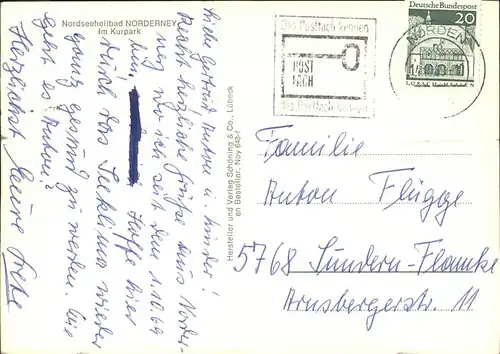 Nordseeheilbad NORDERNEY
Im Kurpark
Liebe Gertrud, Anton u. Kinder!
Recht herzliche Grüße aus Norder-
ney wo ich seit dem 1.10.69
bin. Hoffe hier
durch das Seeklima wieder
ganz gesund zu werden. Wie
geht es Anton?
Herzlichst Eure
Hersteller und Verlag Schöning & Co., Lübeck
Bestellnr. Noy 648
Das Postfach kennen
POST
FACH
das Postfach
NORDEN
Deutsche Bundespost
20
LORSCH
Familie
Anton Flügge
5768 Sundern-Flamke
Arnsbergerstr. 11